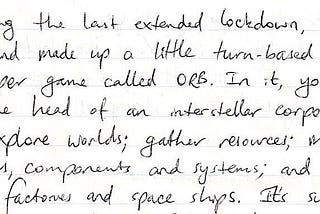 ng the last extended lockdown,
nd made up a little turn-based
per game called ORB. In it, yo
e head of an interstellar corpo
xplore worlds; gather resources; m
s, components and systems; and
factories and space ships. It's su